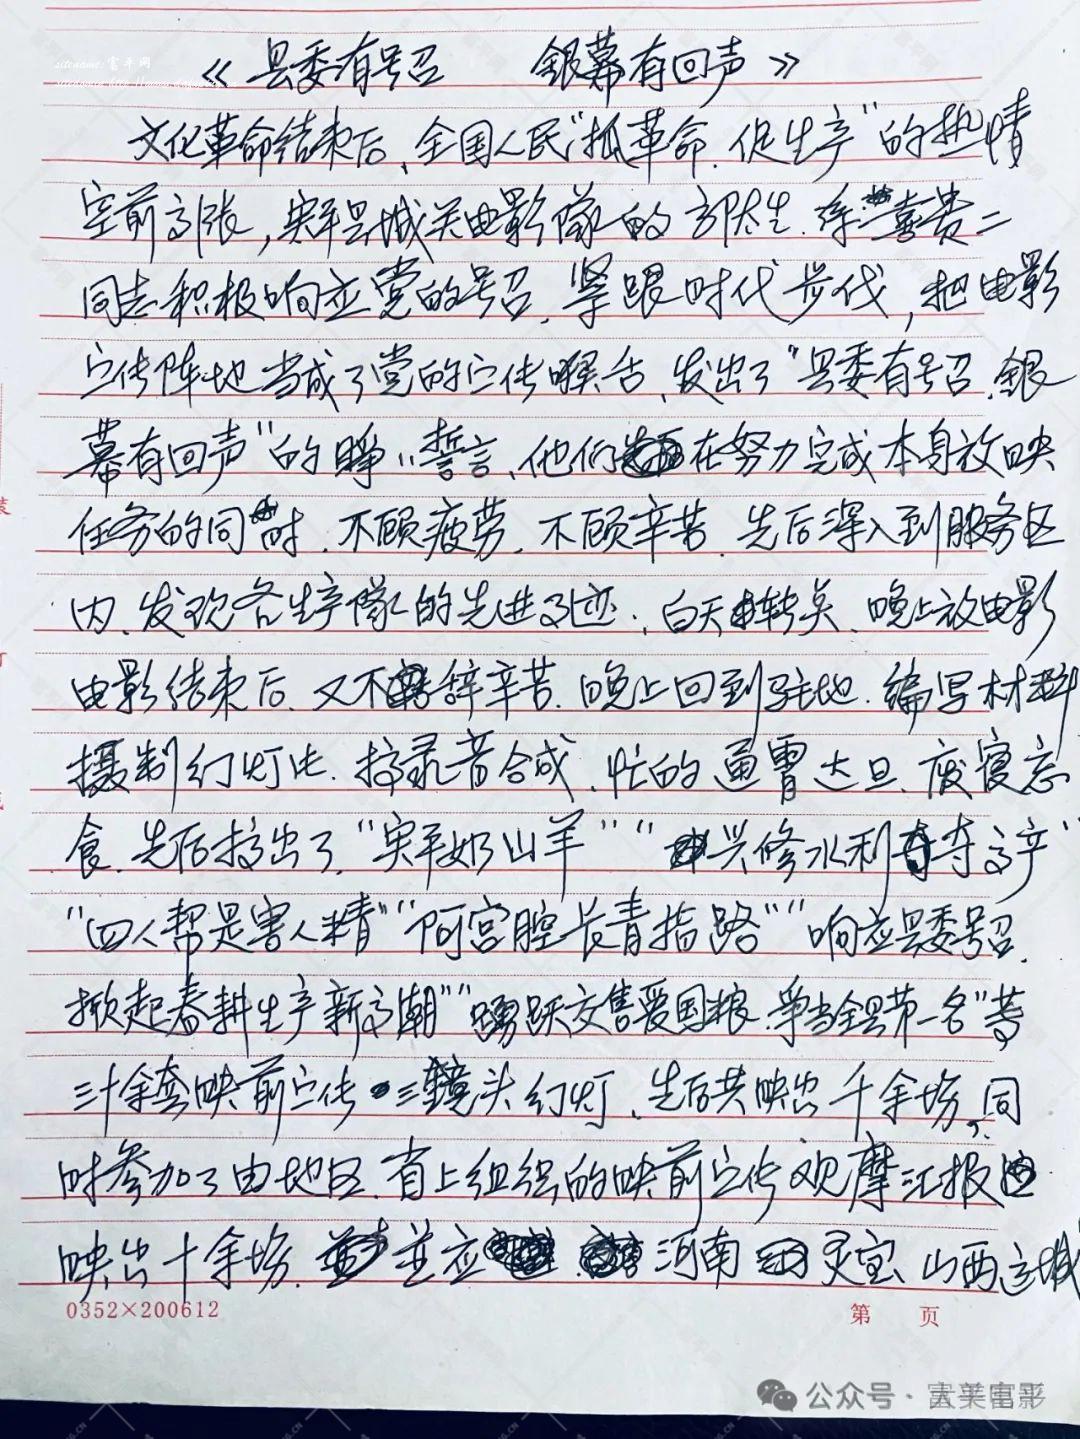 《县委有号召 銀幕有回声》
文化革命结束后、全国人民"抓革命.促生产"的热情
空前高张,富平县城关电影隊的郭太生.喜贵二
同志积极响应党的号召.紧跟时代步伐,把电影
宣传阵地当成了党的宣传喉舌、发出了"县委有号召.銀
幕有回声"的睁〃誓言、他们在努力完成本身放映
任务的同时.不顾疲劳.不顾辛苦.先后深入到服务区
内、发现各生产隊的先进事迹.,白天转点、晚上放电影
电影结束后、又不辞辛苦.晚上回到驻地.编写材料
摄制幻灯片.搞录音合成、忙的通霄达旦、废寝忘
食.先后搞出了"富平奶山羊""兴修水利夺高产"
"四人帮是害人精""阿宫腔长青指路""响应县委号召.
掀起春耕生产新高潮""踴跃交售爱国粮.争当全县第一名"等
三十余套映前宣传三镜头幻灯、先后共映出千余埸、同
时参加了由地区.省上组织的映前宣传观摩汇报
映出十余埸.並应河南灵宝、山西运城
0352×200612
第 页
sitename:富平网
公众号·富美富影